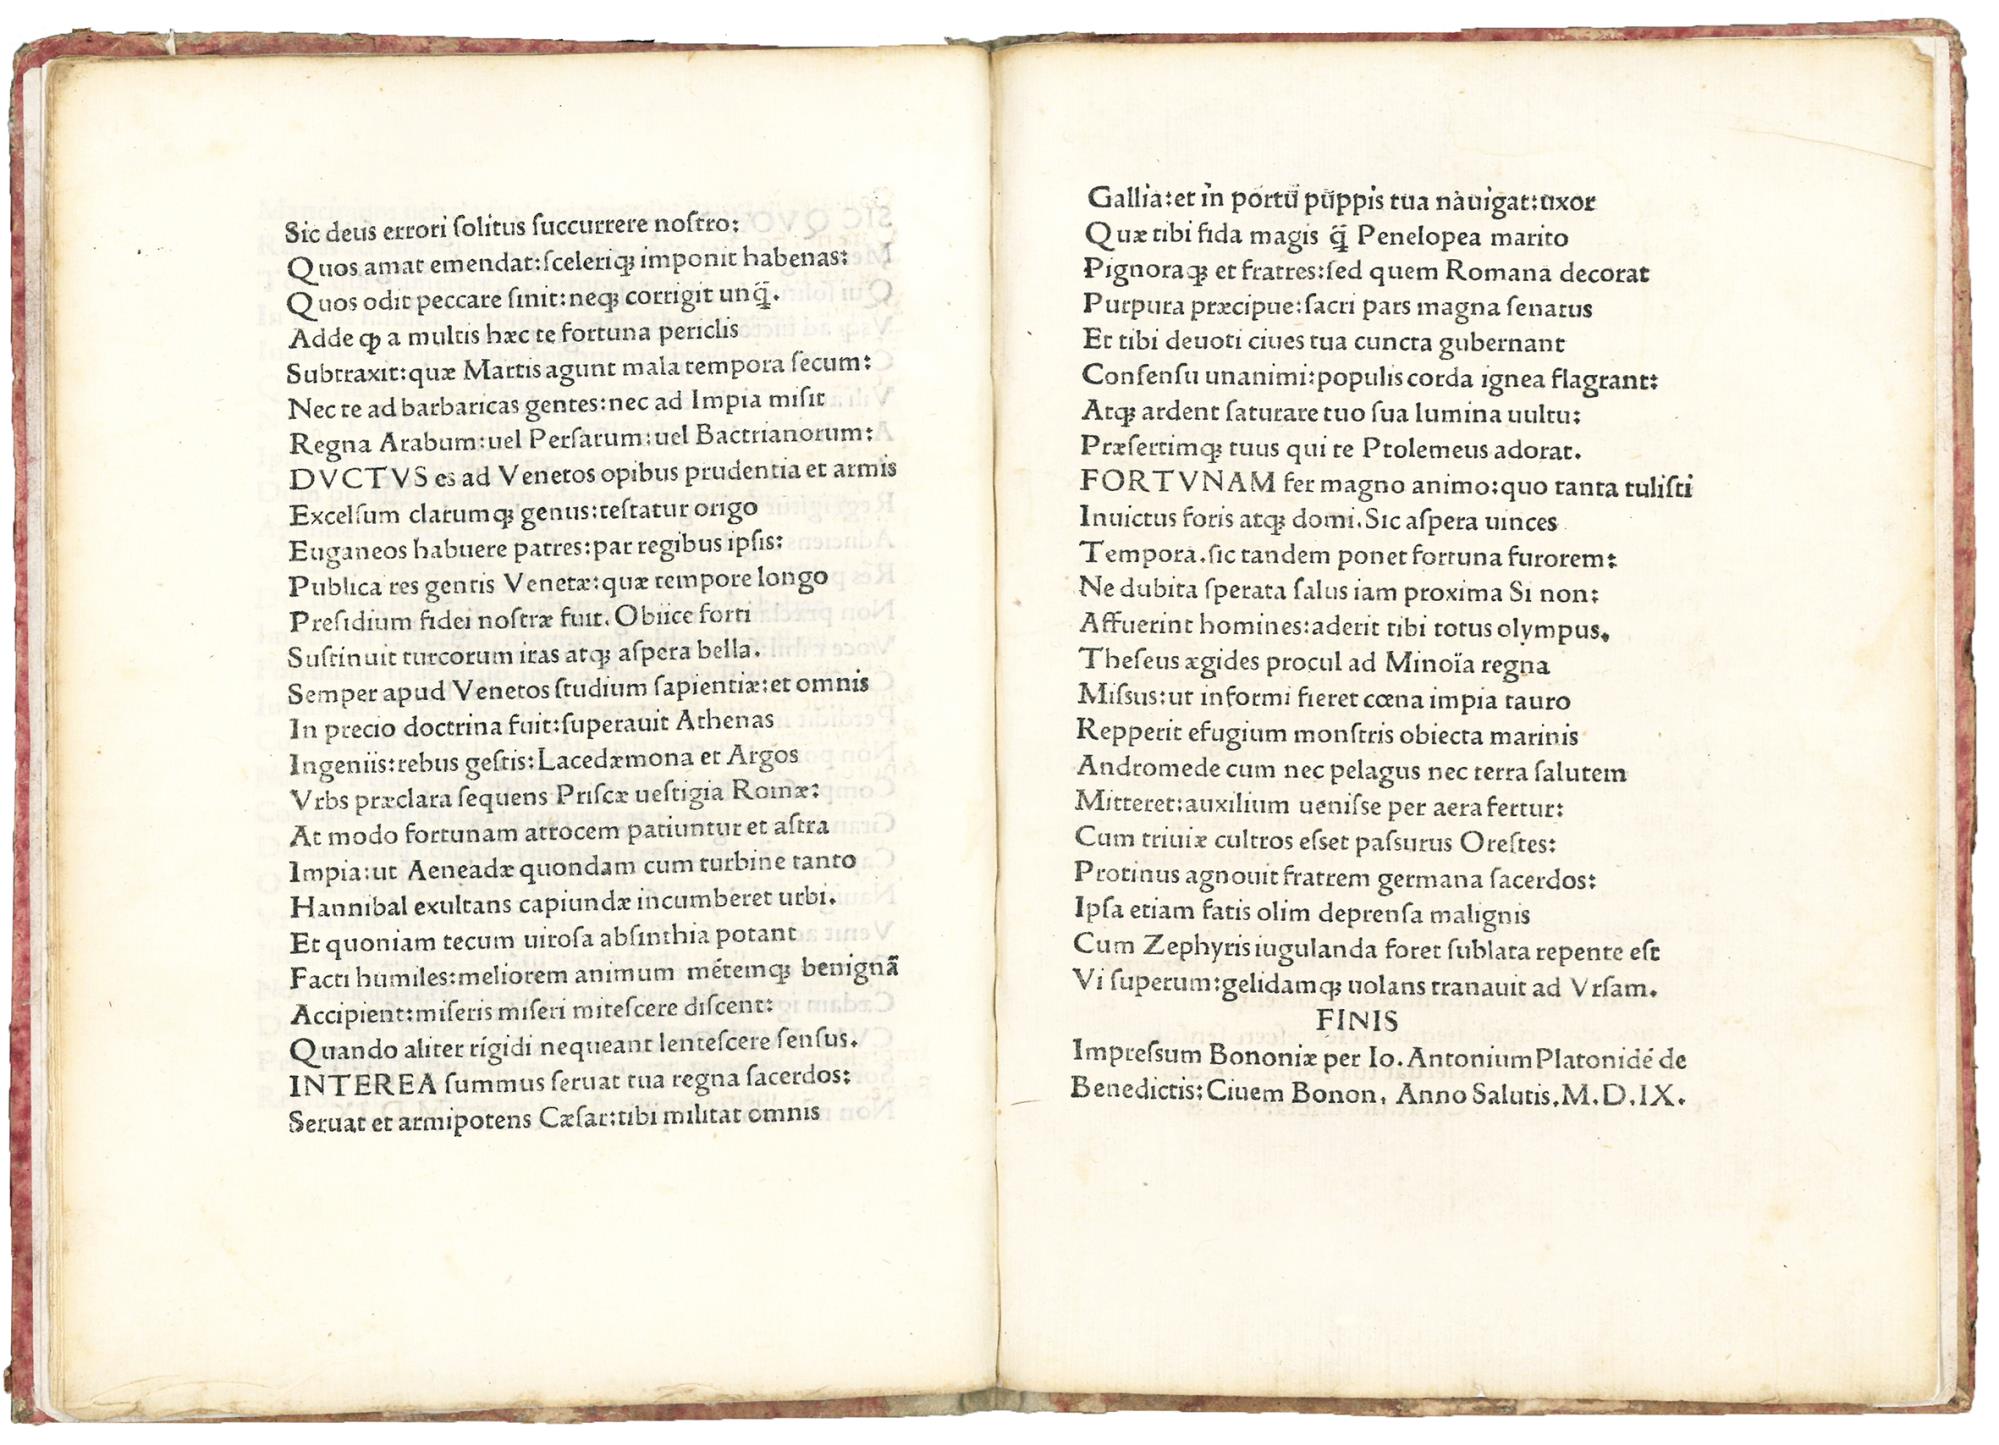 Sic deus errori ſolitus ſuccurrere noſtro:
Quos amat emendat:ſceleriqꝫ imponit habenas:
Quos odit peccare ſinit:neqꝫ corrigit unq̃.
Adde ꝙ a multis hæc te fortuna periclis
Subtraxit:quæ Martis agunt mala tempora ſecum:
Nec te ad barbaricas gentes:nec ad Impia miſit
Regna Arabum:uel Perſarum:uel Bactrianorum:
DVCTVS es ad Venetos opibus prudentia et armis
Excelſum clarumqꝫ genus:teſtatur origo
Euganeos habuere patres:par regibus ipſis:
Publica res gentis Venetæ:quæ tempore longo
Preſidium fidei noſtræ fuit. Obiice forti
Suſtinuit turcorum iras atqꝫ aſpera bella.
Semper apud Venetos ſtudium ſapientiæ:et omnis
In precio doctrina fuit:ſuperauit Athenas
Ingeniis:rebus geſtis:Lacedæmona et Argos
Vrbs præclara ſequens Priſcæ ueſtigia Romæ:
At modo fortunam attocem patiuntur et aſtra
Impia:ut Aeneadæ quondam cum turbine tanto
Hannibal exultans capiundæ incumberet urbi.
Et quoniam tecum uiroſa abſinthia potant
Facti humiles:meliorem animum mētemqꝫ benignã
Accipient:miſeris miſeri miteſcere diſcent:
Quando aliter rigidi nequeant lenteſcere ſenſus.
INTEREA ſummus ſeruat tua regna ſacerdos:
Seruat et armipotens Cæſar:tibi militat omnis
Gallia:et in portu puppis tua nauigat:uxor
Quæ tibi fida magis q̃ Penelopea marito
Pignoraqꝫ et fratres:ſed quem Romana decorat
Purpura præcipue:ſacri pars magna ſenatus
Et tibi deuoti ciues tua cuncta gubernant
Conſenſu unanimi:populis corda ignea flagrant:
Atqꝫ ardent ſaturare tuo ſua lumina uultu:
Præſertimqꝫ tuus qui te Ptolemeus adorat.
FORTVNAM fer magno animo:quo tanta tuliſti
Inuictus foris atqꝫ domi. Sic aſpera uinces
Tempora. ſic tandem ponet fortuna furorem:
Ne dubita ſperata ſalus iam proxima Si non:
Affuerint homines:aderit tibi totus olympus.
Theſeus ægides procul ad Minoïa regna
Miſsus:ut informi fieret cœna impia tauro
Repperit efugium monſtris obiecta marinis
Andromede cum nec pelagus nec terra ſalutem
Mitteret:auxilium ueniſse per aera fertur:
Cum triuiæ cultros eſset paſsurus Oreſtes:
Protinus agnouit fratrem germana ſacerdos:
Ipſa etiam fatis olim deprenſa malignis
Cum Zephyris iugulanda foret ſublata repente eſt
Vi ſuperum:gelidamqꝫ uolans tranauit ad Vrſam.
FINIS
Impreſsum Bononiæ per Io. Antonium Platonidē de
Benedictis: Ciuem Bonon. Anno Salutis. M.D.IX.